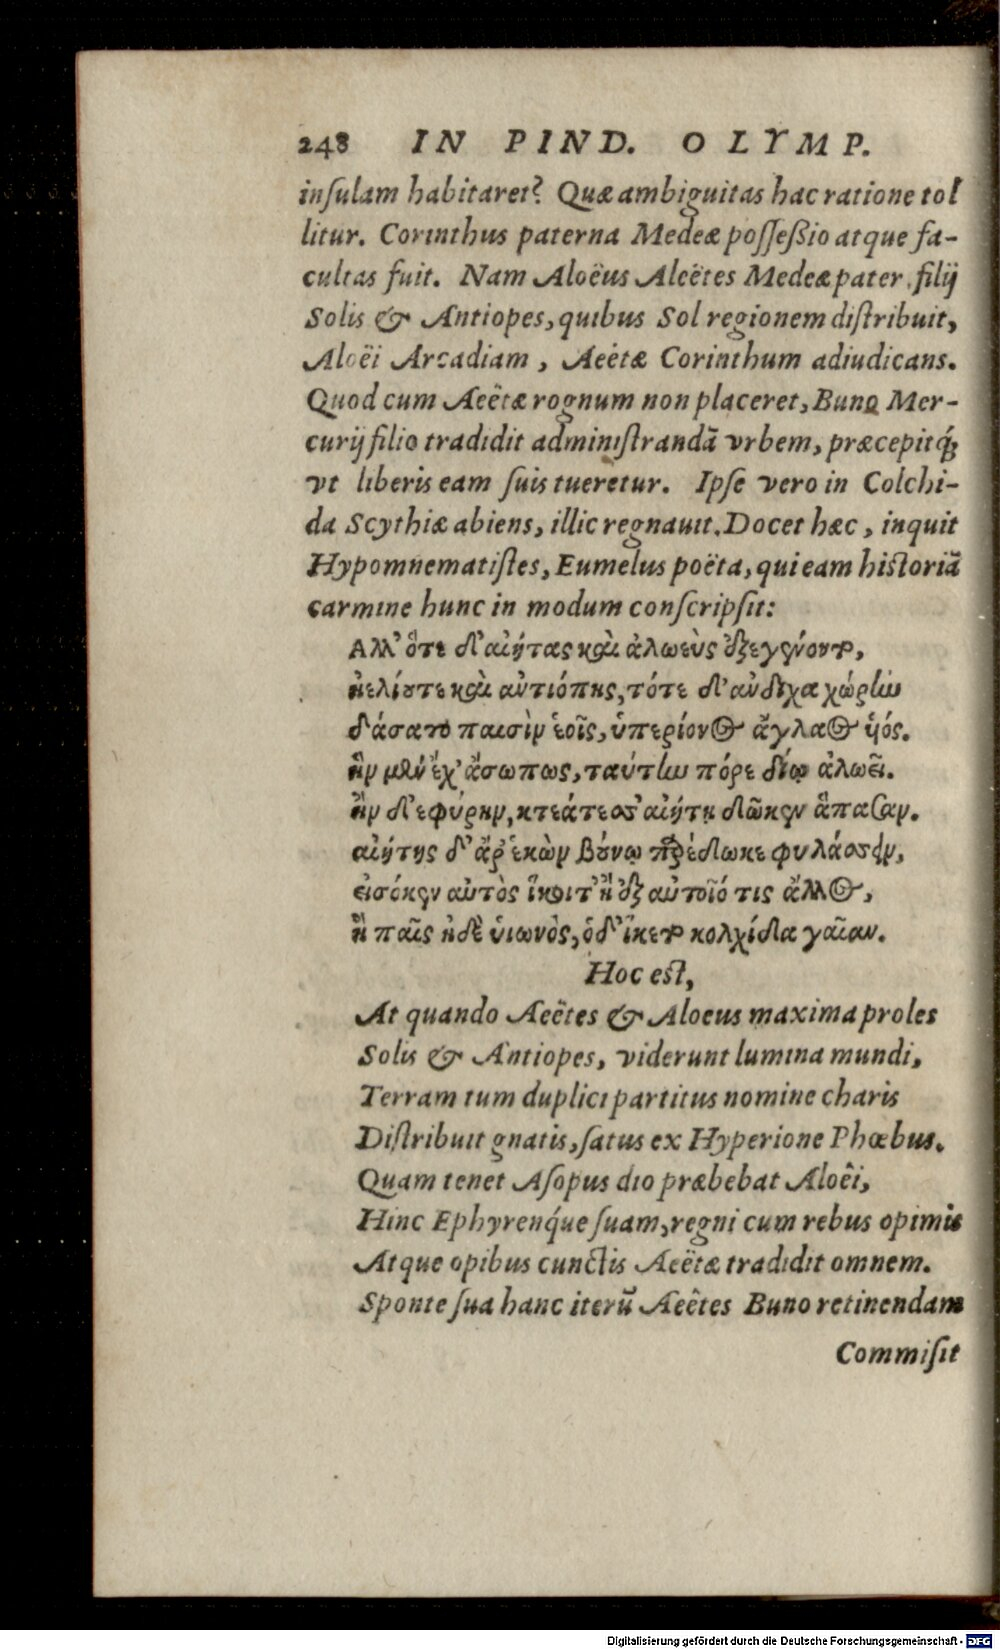 248 IN PIND. OLYMP.
inſulam habitaret? Quæ ambiguitas hac ratione tol
litur. Corinthus paterna Medeæ poſſeßio atque fa-
cultas fuit. Nam Aloëus Aleëtes Medeæ pater filij
Solis & Antiopes, quibus Sol regionem diſtribuit,
Aloëi Arcadiam, Aeëtæ Corinthum adiudicans.
Quod cum Aeëtæ rognum non placeret, Buno Mer-
curij filio tradidit adminiſtrandã vrbem, præcepitq́;
vt liberis eam ſuis tueretur. Ipſe vero in Colchi-
da Scythiæ abiens, illic regnauit. Docet hæc, inquit
Hypomnematiſtes, Eumelus poëta, qui eam hiſtoriã
carmine hunc in modum conſcripſit:
Αλλ' ὅτε δ' αἰήτας καὶ ἀλωεὺς ἐξεγένοντο,
ἠελίου τε καὶ αὐτιόπης, τότε δ' ἀνδιχα χώρην
δάσατο παισὶν ἑοῖς, ὑπερίονος ἄγλαος ὑός.
ἣν μὲν ἔχ' ἄσωπως, ταύτην πόρε δίῳ ἀλωεῖ.
ἣν δ' εφύρην, κτεάτεσσ' αἰήτῃ δῶκεν ἅπασαν.
αἰήτης δ' ἄρ' ἑκὼν βούνῳ παρέδωκε φυλάσσειν,
εἰσόκεν αὐτὸς ἵκοιτ' ἢ ἐξ αὐτοῖό τις ἄλλος,
ἢ παῖς ἠδὲ ὑιωνὸς, ὁδ' ἵκετο κολχίδα γαῖαν.
Hoc eſt,
At quando Aeëtes & Aloeus maxima proles
Solis & Antiopes, viderunt lumina mundi,
Terram tum duplici partitus nomine charis
Diſtribuit gnatis, ſatus ex Hyperione Phœbus.
Quam tenet Aſopus dio præbebat Aloêi,
Hinc Ephyrenq́ue ſuam, regni cum rebus opimis
Atque opibus cunctis Aeëtæ tradidit omnem.
Sponte ſua hanc iterũ Aeêtes Buno retinendam
Commiſit
Digitalisierung gefördert durch die Deutsche Forschungsgemeinschaft - DFG